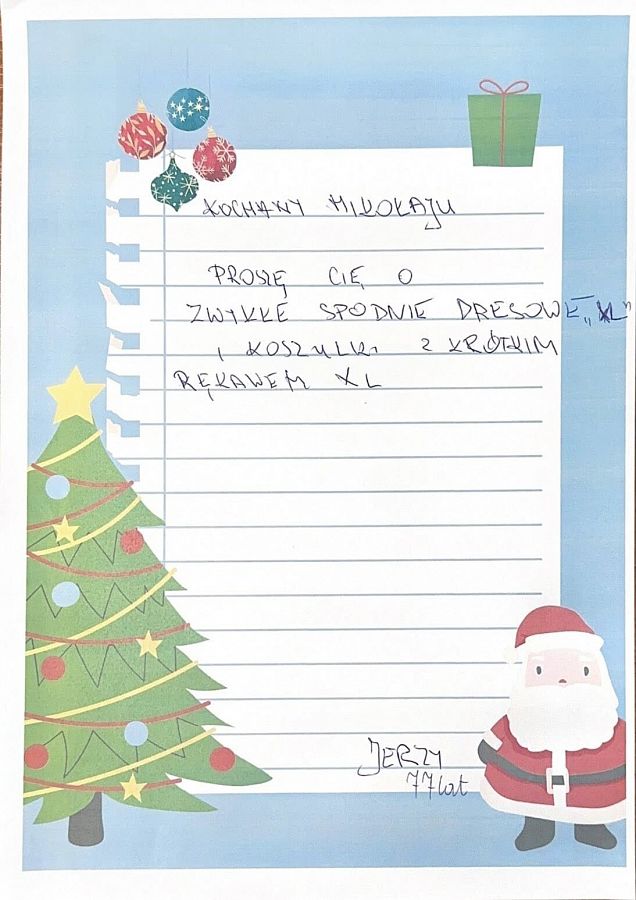 KOCHANY MIKOŁAJU
PROSZĘ CIĘ O
ZWYKŁE SPODNIE DRESOWE „XL"
I KOSZULKI Z KRÓTKIM
RĘKAWEM XL
JERZY
77 lat